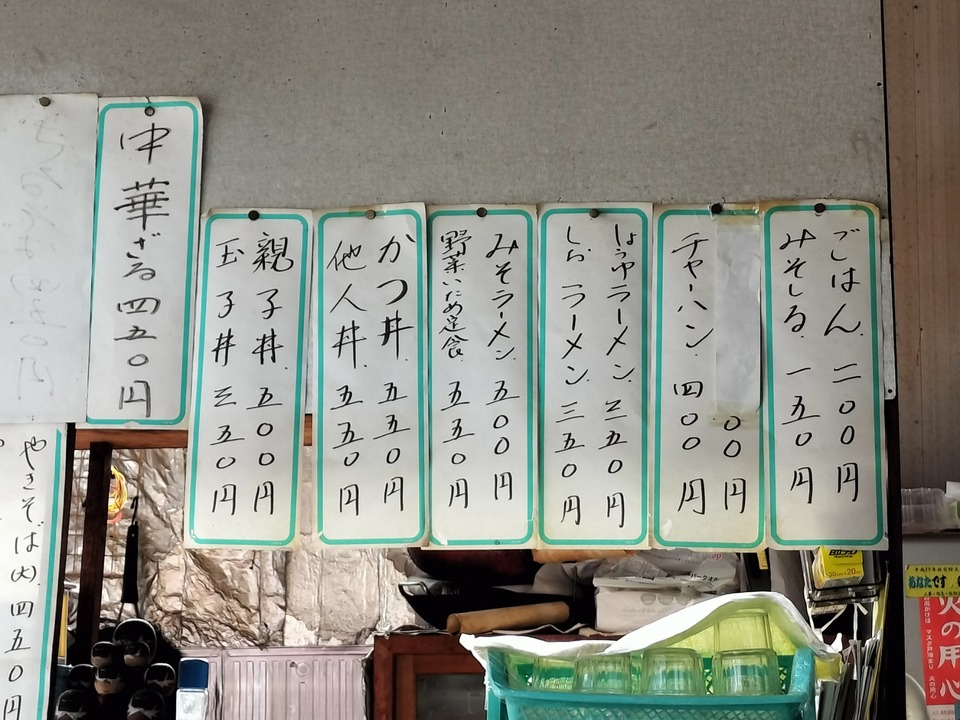 ごはん 二〇〇円
みそしる 一五〇円
〇〇円
チャーハン 四〇〇円
しょうゆラーメン 三五〇円
しおラーメン 三五〇円
みそラーメン 五〇〇円
野菜いため定食 五五〇円
かつ丼 五五〇円
他人丼 五五〇円
親子丼 五〇〇円
玉子丼 三五〇円
中華ざる 四五〇円
やきそば(大) 四五〇円
あなたです
火の用心